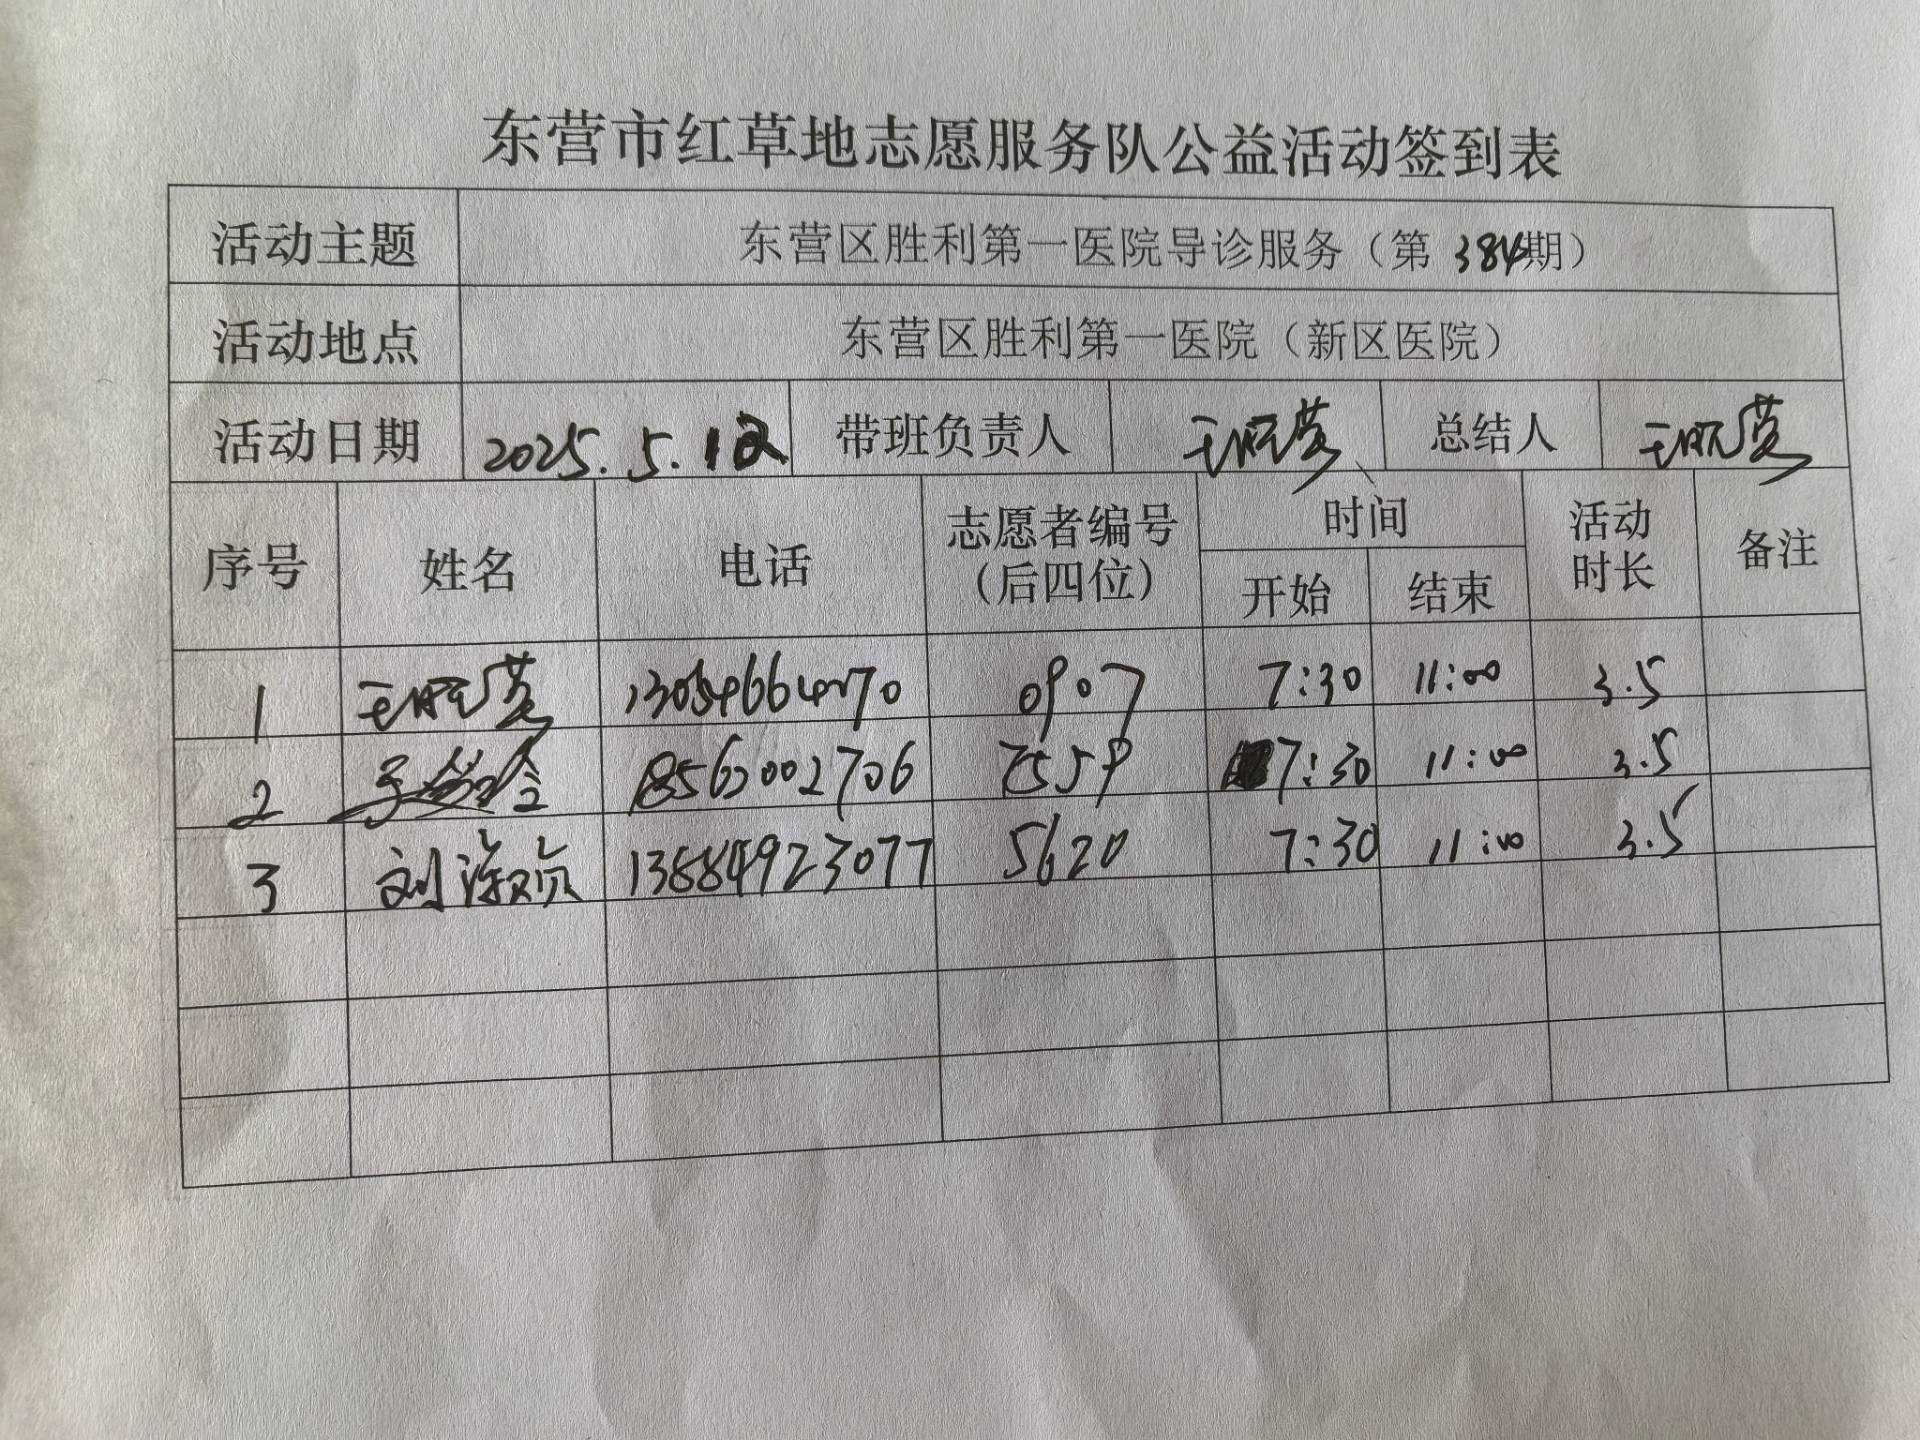 东营市红草地志愿服务队公益活动签到表
活动主题 东营区胜利第一医院导诊服务（第 384期）
活动地点 东营区胜利第一医院（新区医院）
活动日期 2025.5.12 带班负责人 总结人
序号 姓名 电话 志愿者编号（后四位） 时间 开始 结束 活动时长 备注
1 0907 7:30 11:00 3.5
2 18562002706 7559 7:30 11:00 3.5
3 刘 13884923077 5620 7:30 11:00 3.5